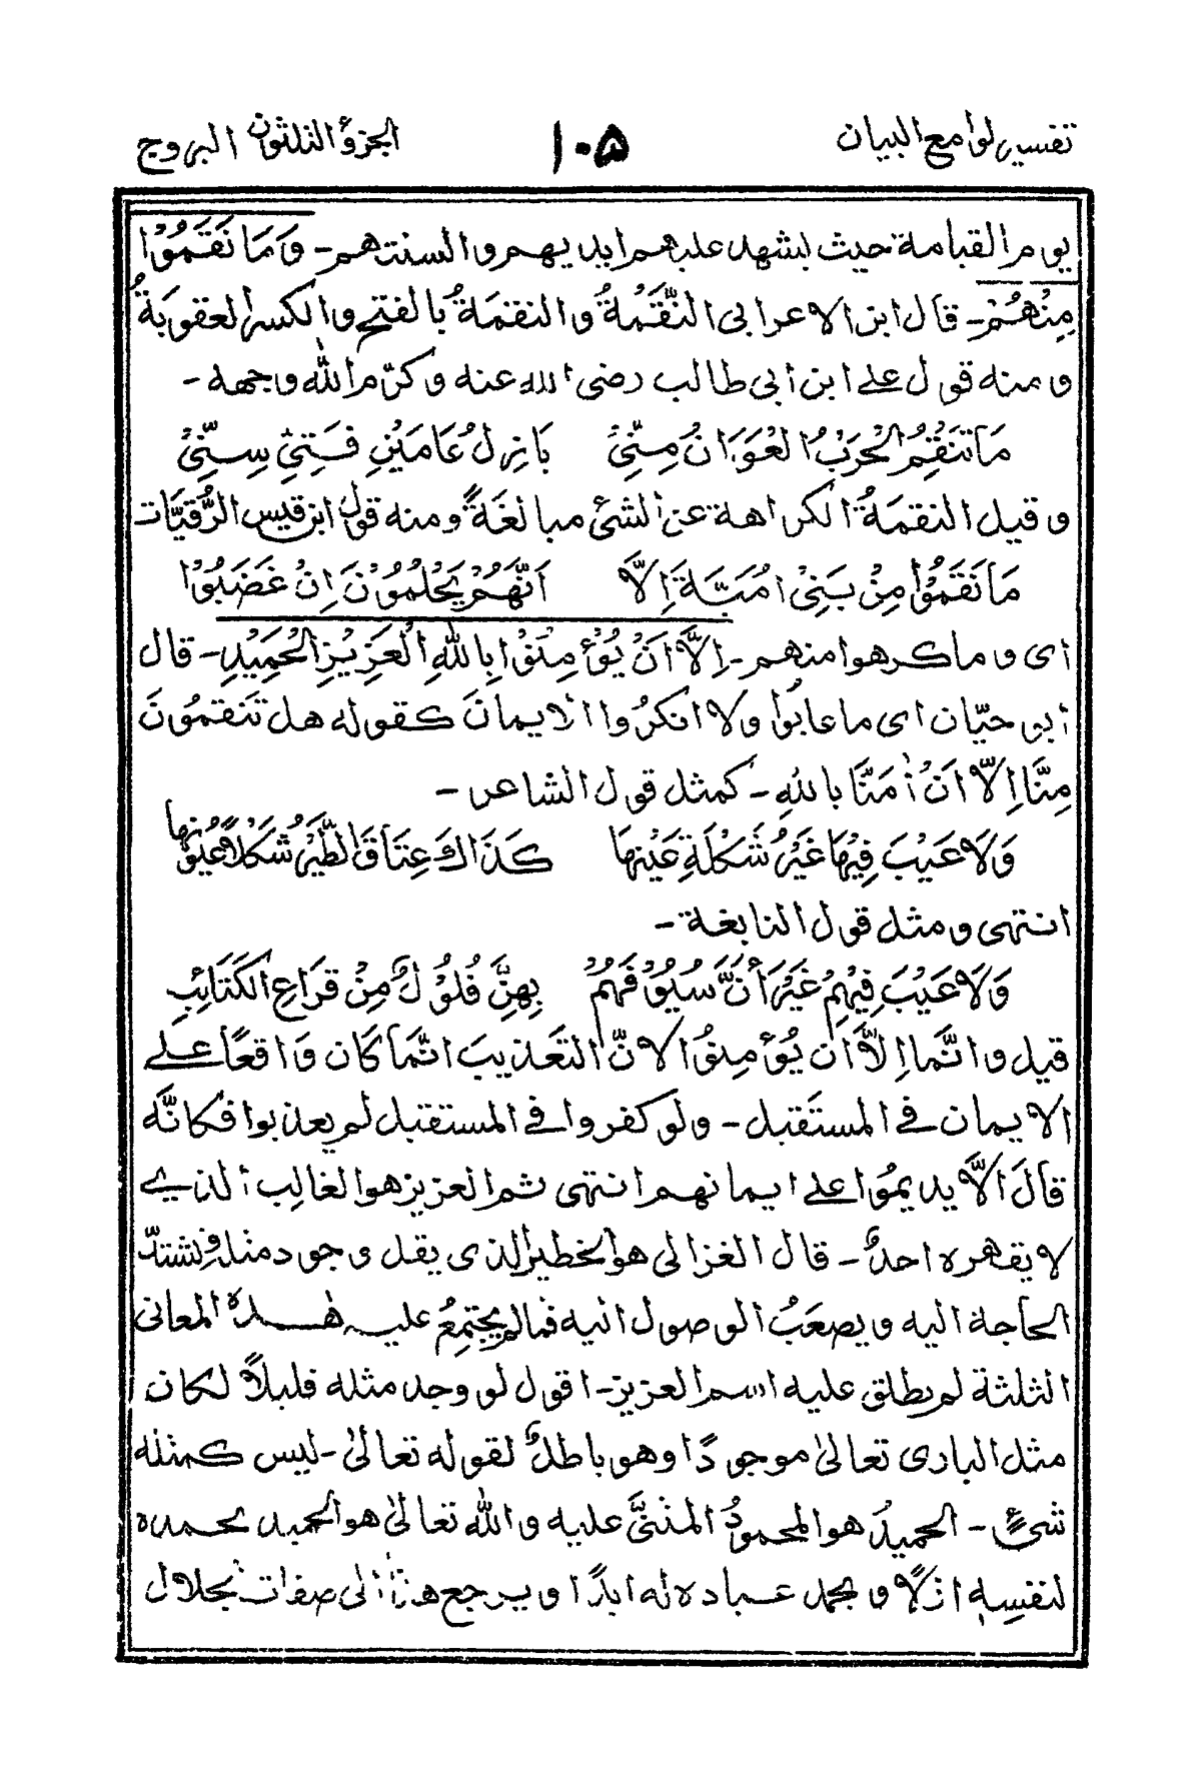 تفسير لوامع البيان ١٠٥ الجزؤ الثلثون البروج
يوم القيامة حيث ليشهد عليهم ايديهم والسنتهم - وَمَا نَقَمُوْا
مِنْهُمْ - قال ابن الاعرابى النَّقَمْةُ والنقمَةُ بالفتح والكسر العقوبَةُ
ومنه قول على ابن ابى طالب رضى الله عنه وكرّم الله وجهه -
مَا تَنْقِمُ الْحَرْبُ الْعَوَانُ مِنِّىْ بَازِلُ عَامَيْنِ فَتِىْ سِنِّىْ
وقيل النقمَةُ الكراهة عن الشئ مبالغَةً ومنه قول ابن قيس الرُّقيَّات
مَا نَقَمُوْا مِنْ بَنِىْ اُمَيَّةَ اِلَّا اَنَّهُمْ يَحْلُمُوْنَ اِنْ غَضَبُوْا
اى وما كرهوا منهم - اِلَّا اَنْ يُؤْمِنُوْا بِاللّٰهِ الْعَزِيْزِ الْحَمِيْدِ - قال
ابو حيّان اى ما عابُوا ولا انكرُوا الايمانَ كقوله هل تَنقمُونَ
مِنَّا اِلَّا اَنْ اٰمَنَّا باللهِ - كمثل قول الشاعر -
وَلَا عَيْبَ فِيْهَا غَيْرُ شَكْلَةِ عَيْنِهَا كَذَاكَ عِتَاقَ الطَّيْرُ شَكْلًا عُيُوْنُهَا
انتهى ومثل قول النابغة -
وَلَا عَيْبَ فِيْهِمْ غَيْرَ أَنَّ سُيُوْفَهُمْ بِهِنَّ فُلُوْلٌ مِنْ قَرَاعِ الْكَتَائِبِ
قيل وانَّما اِلَّا اَن يُؤمِنُوا لانّ التَعذيبَ انَّما كَان وَاقعًا على
الايمان فى المستَقبل - ولو كفروا فى المستقبل لم يعذبوا فكانَّه
قالَ الَّا يديمُوا على ايمانهم انتهى ثم العزيز هو الغالِب الذى
لا يقهره احدٌ - قال الغزالى هو الخطير الذى يقل وجود مثله فيشتدّ
الحاجة اليه ويصعَبُ الوصول اليه فما لم يجتمِعُ عليه هٰذه المعانى
الثلثة لم يطلق عليه اسم العزيز - اقول لو وجد مثله قليلاً لكان
مثل البارى تعالىٰ موجودًا وهو باطلٌ لقوله تعالىٰ - ليس كمثله
شئٌ - الحميدُ هو المحمودُ المثنىَّ عليه والله تعالىٰ هو الحميد بحمده
لنفسِه ازلًا وبحمد عباده له ابدًا ويرجع هذا الى صفات الجلال